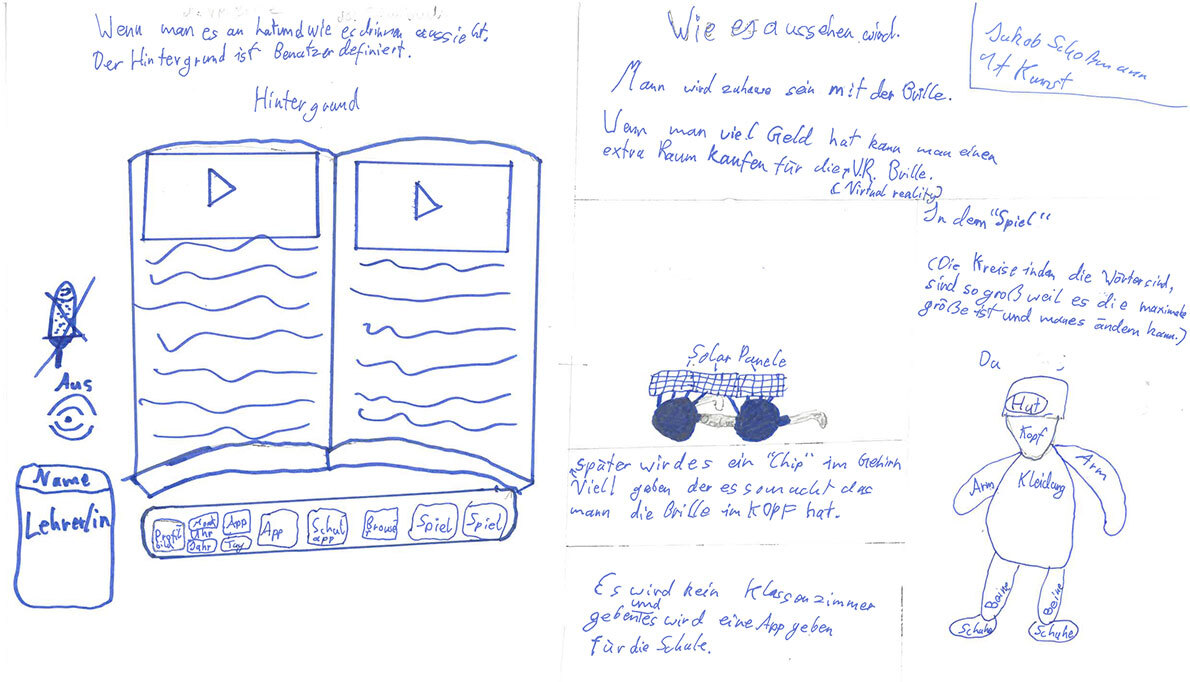 Wenn man es an hat und wie es drinnen aussieht.
Der Hintergrund ist Benutzer definiert.
Hintergrund
Aus
Name
Lehrer/in
Profil
bild
Monat
Uhr
Jahr
App
Tag
App
Schul
app
Browse
r
Spiel
Spiel
Wie es aussehen wird.
Jakob Schoßmann
1f Kunst
Mann wird zuhause sein mit der Brille.
Wenn man viel Geld hat kann man einen
extra Raum kaufen für die V.R. Brille.
(Virtual reality)
Solar Panele
später wird es ein "Chip" im Gehirn
Viell geben der es so macht das
mann die Brille im KOPF hat.
Es wird kein Klassenzimmer
geben und es wird eine App geben
für die Schule.
In dem "Spiel"
(Die Kreise in den die Wörter sind,
sind so groß weil es die maximale
größe ist und man es ändern kann.)
Du
Hut
Kopf
Arm
Kleidung
Arm
Beine
Beine
Schuhe
Schuhe